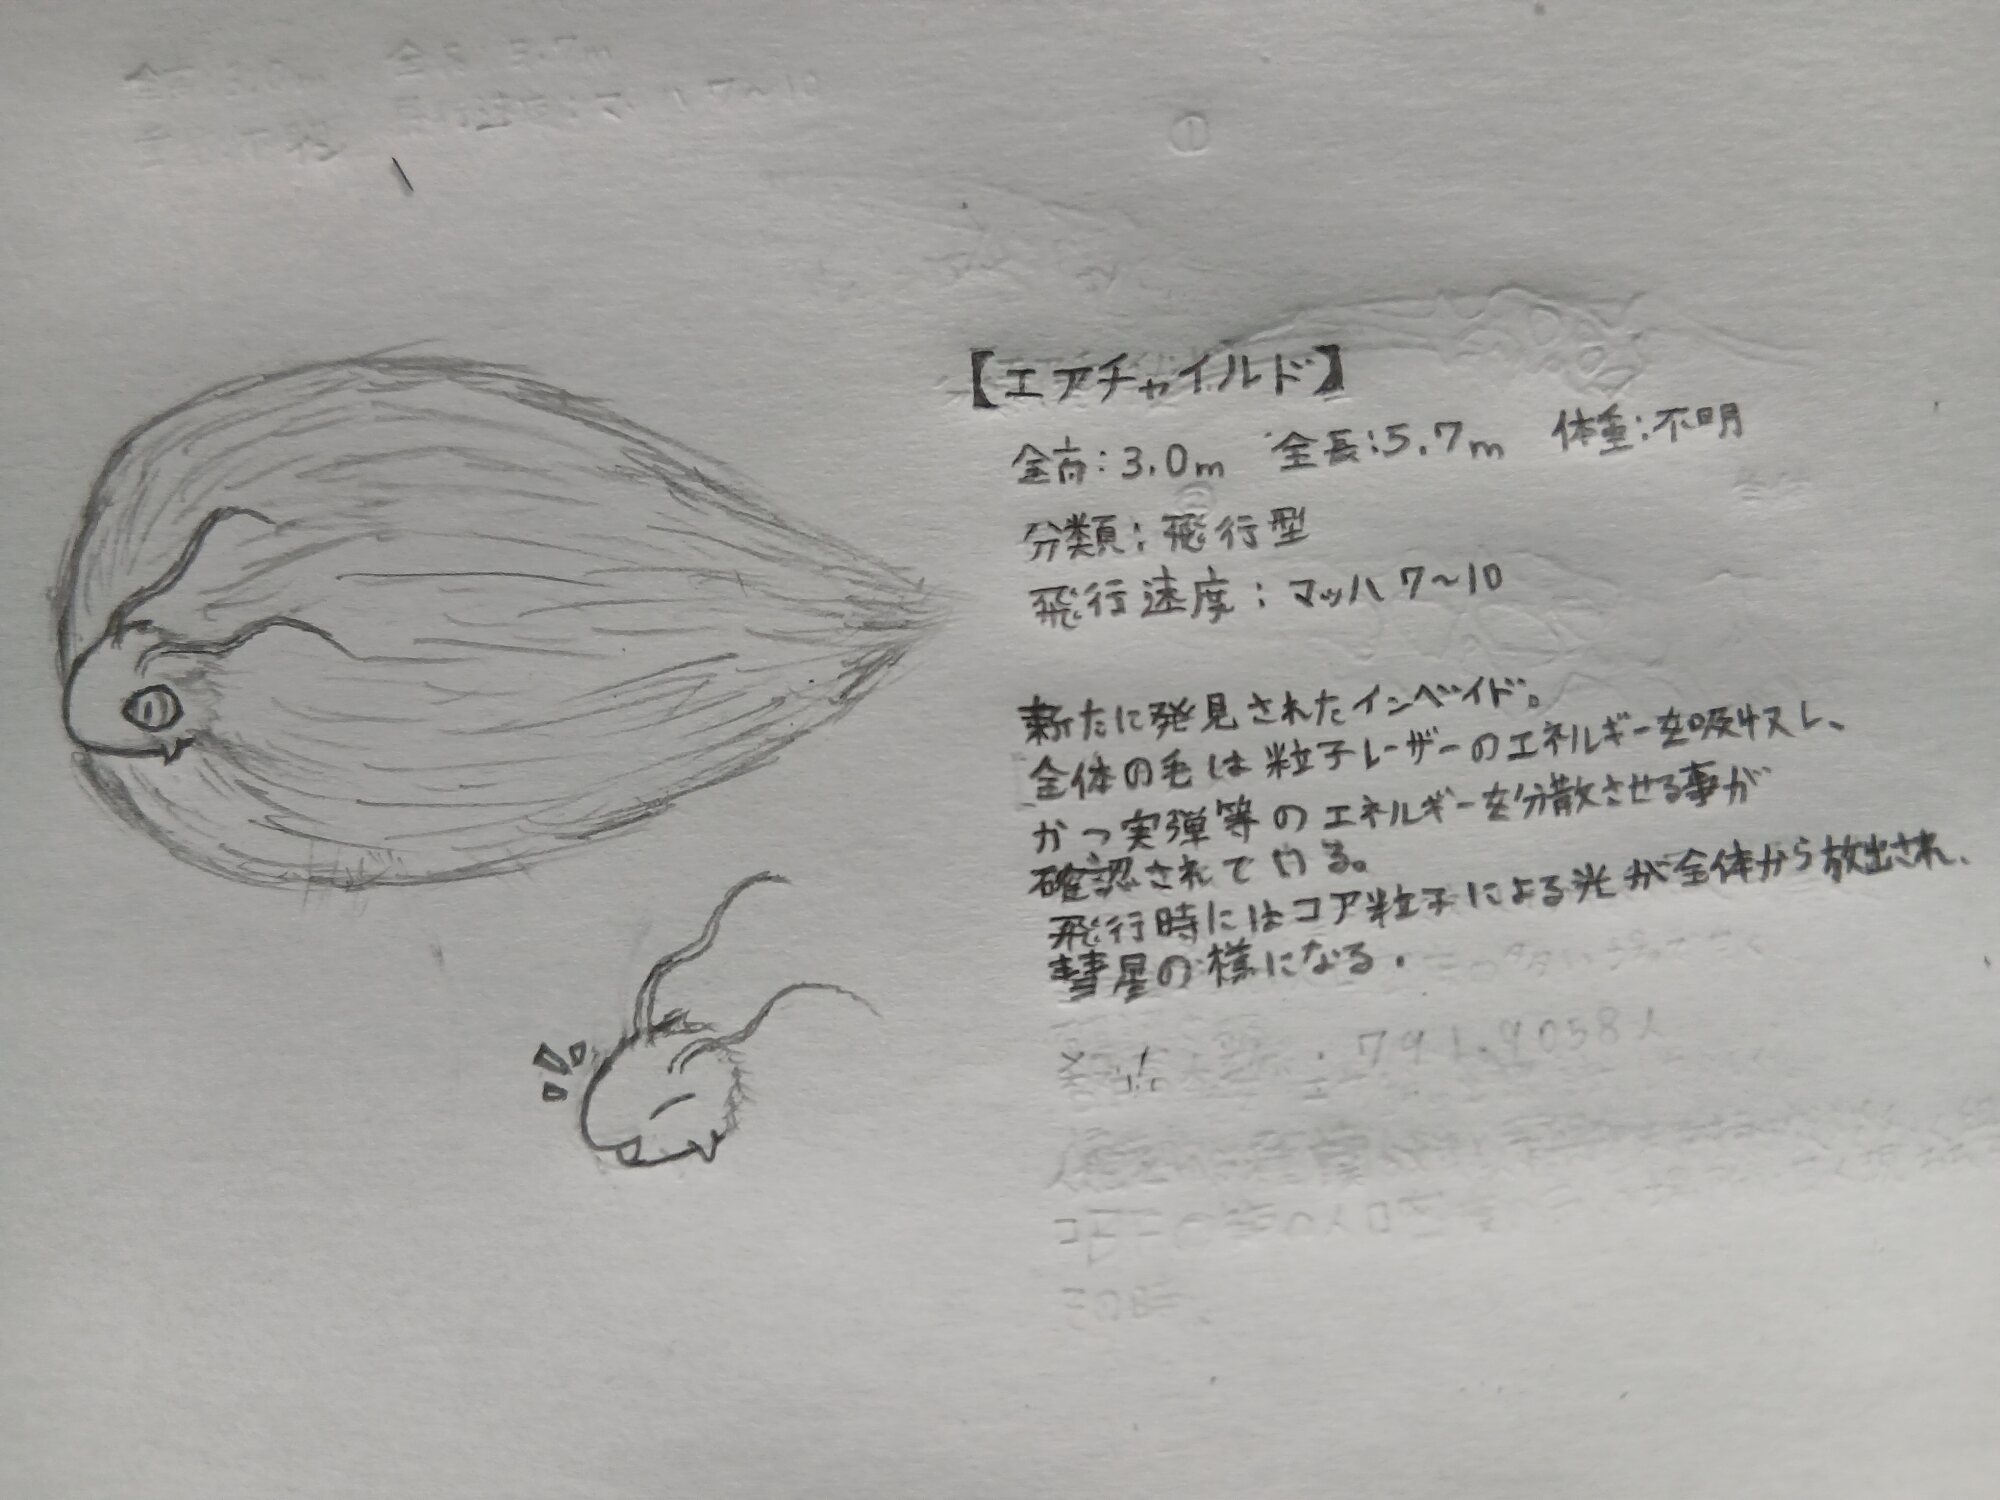 【エアチャイルド】
全高:3.0m 全長:5.7m 体重:不明
分類:飛行型
飛行速度:マッハ7~10
新たに発見されたインベイド。
全体の毛は粒子レーザーのエネルギーを吸収し、
かつ実弾等のエネルギーを分散させる事が
確認されている。
飛行時にはコア粒子による光が全体から放出され、
彗星の様になる.